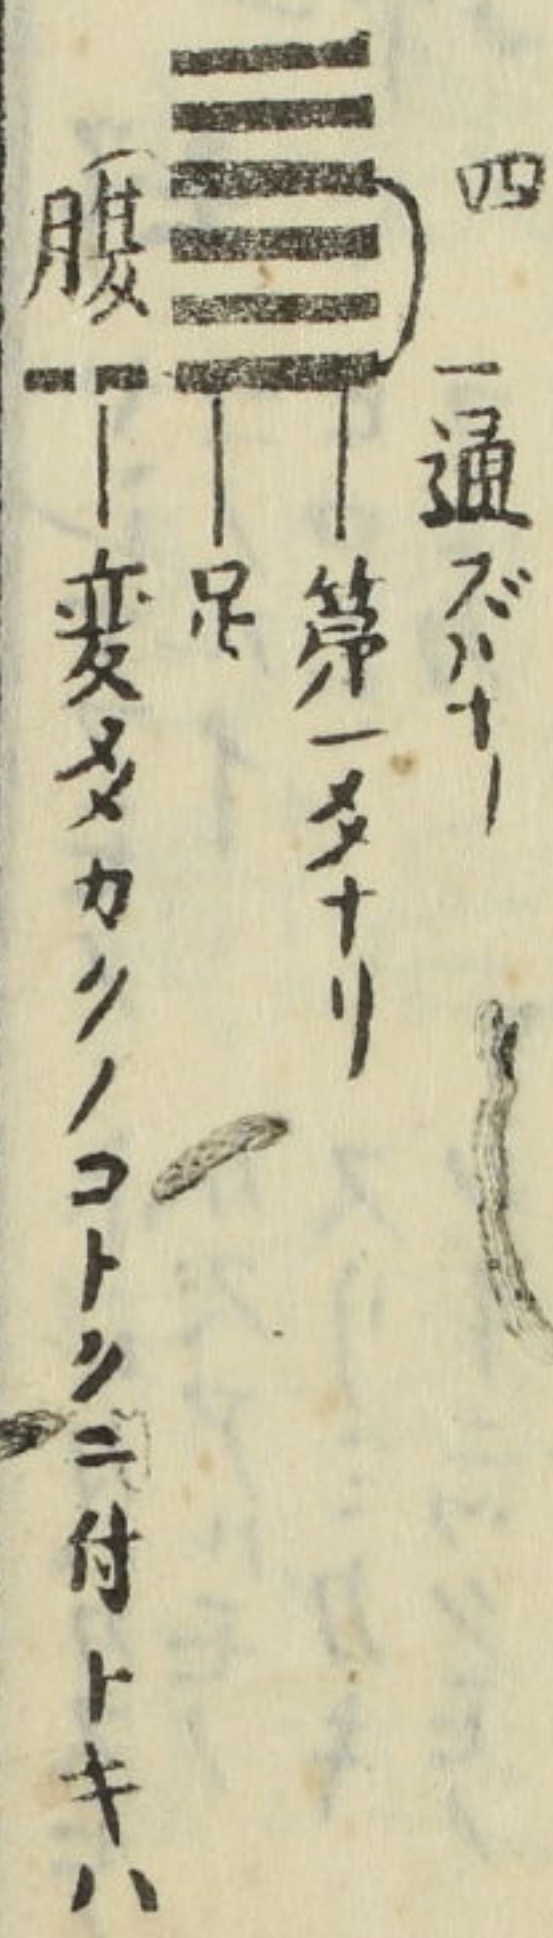 四
一通ズハナー
第一爻ナリ
足
腹
変爻カクノコトクニ付トキハ